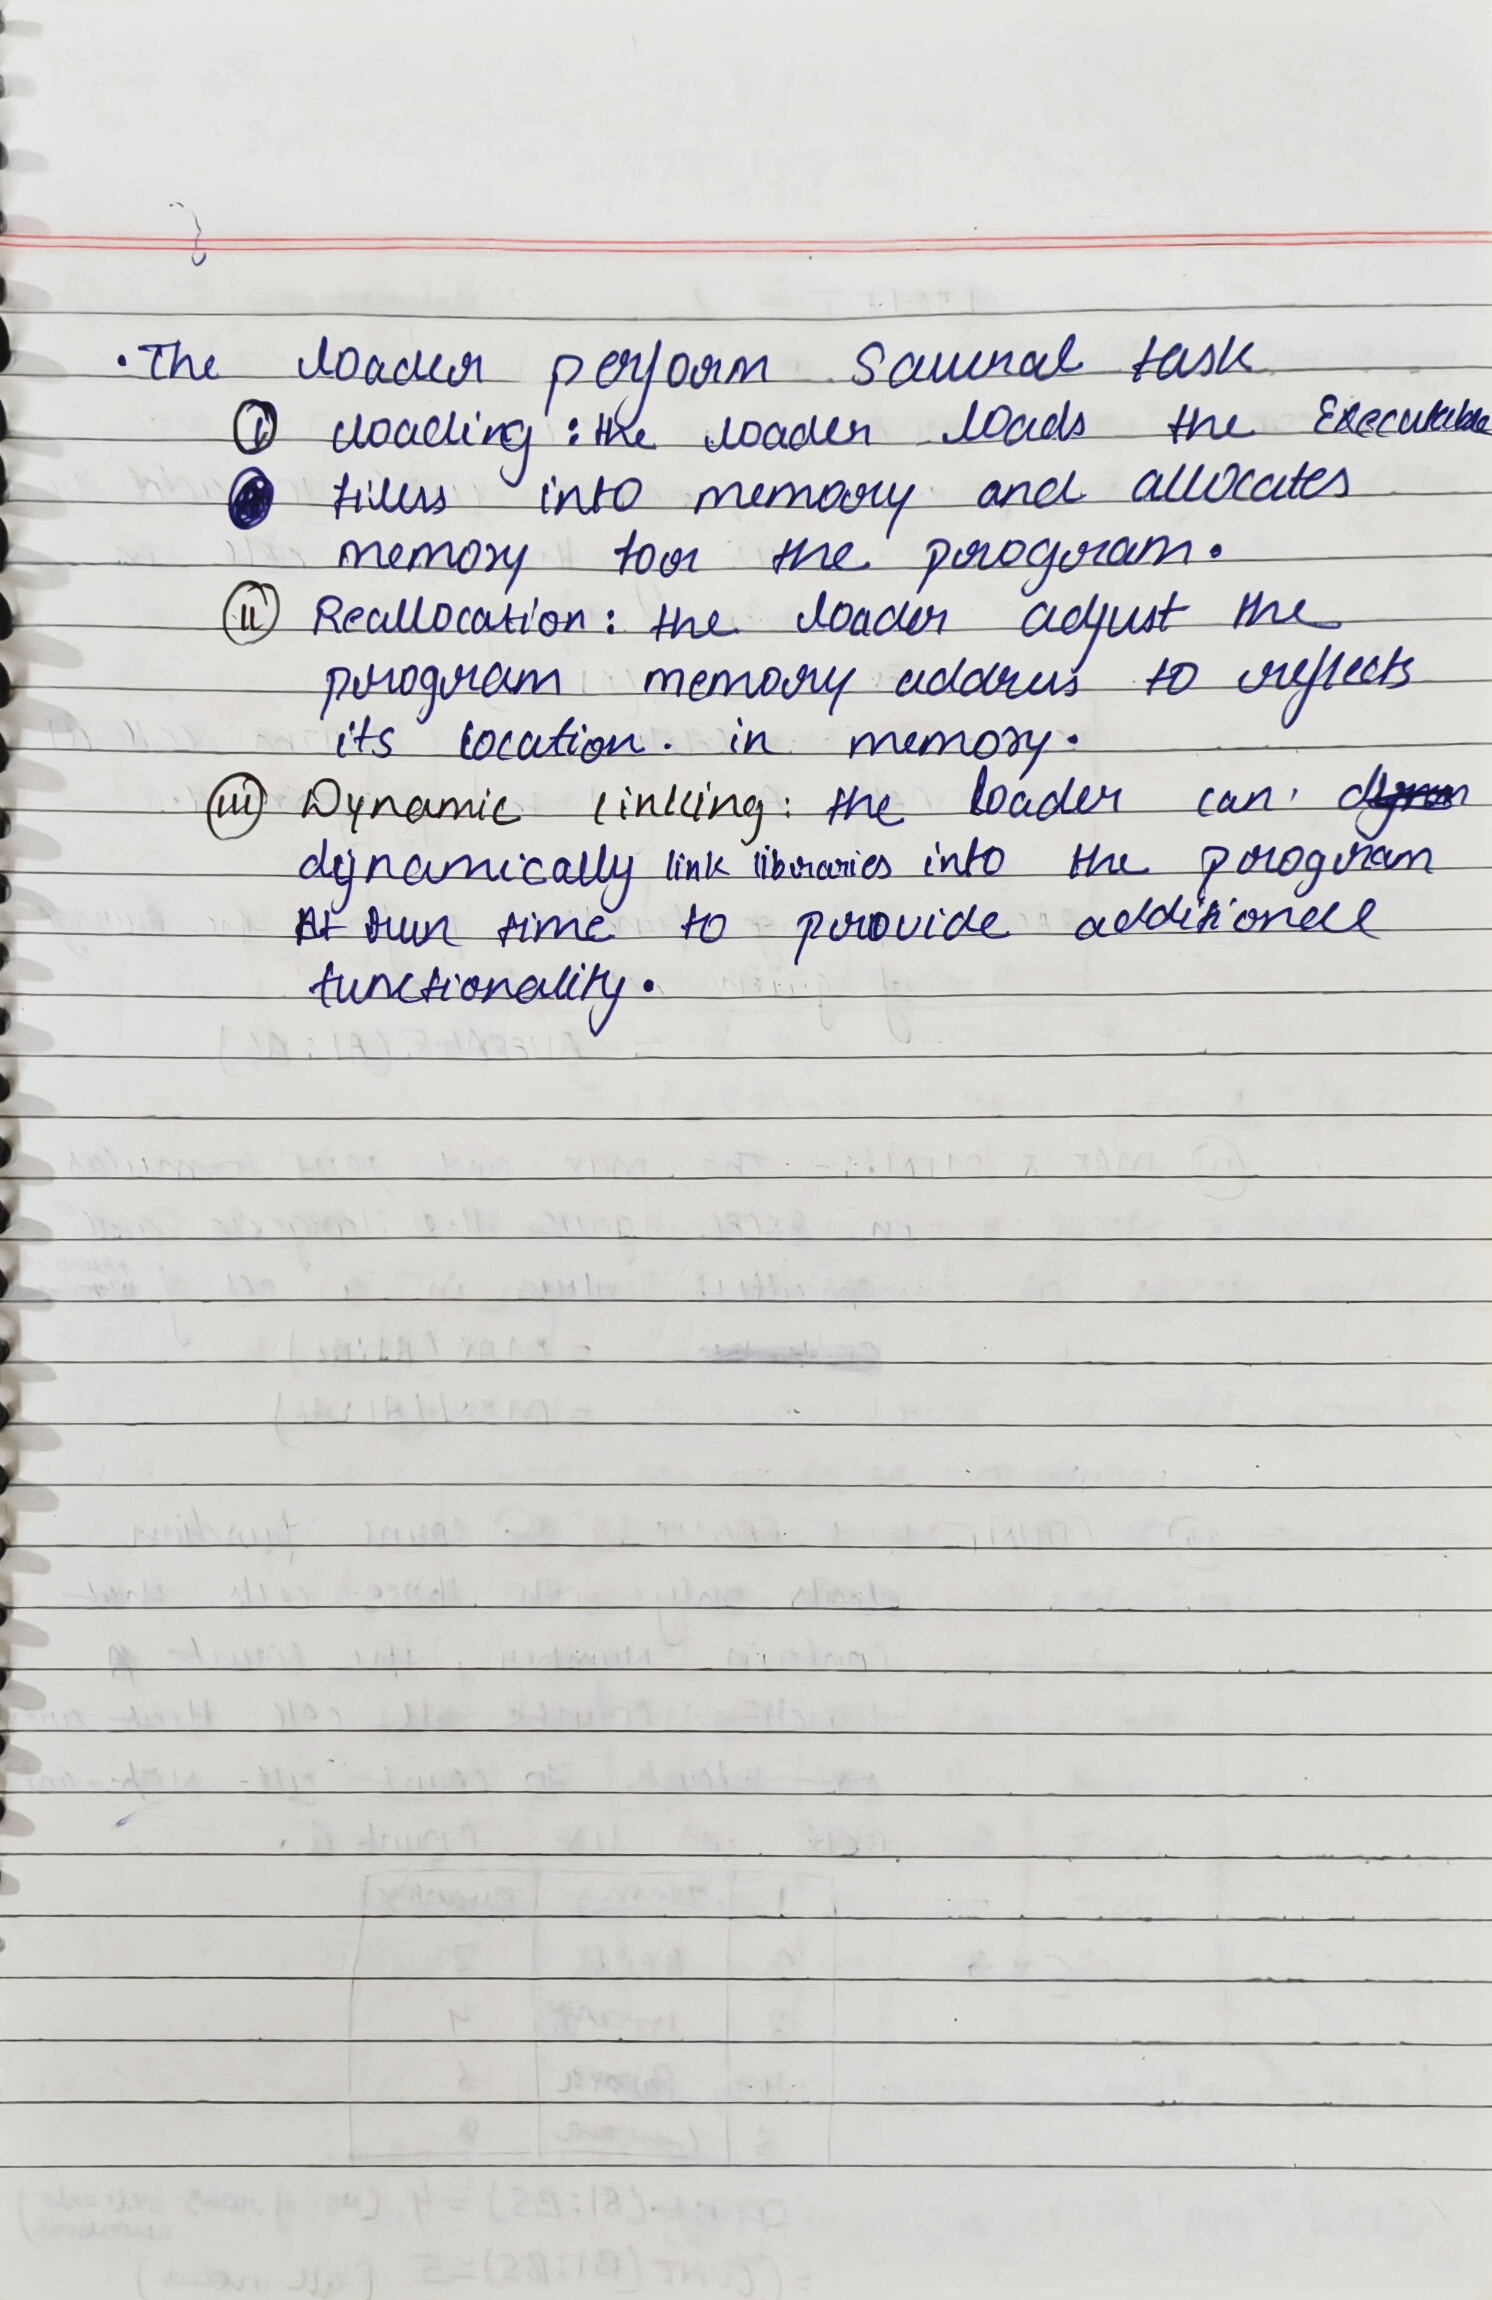 • The loader perform Saveral task
(i) loading : the loader loads the Executable
files into memory and allocates
memory for the program.
(ii) Reallocation : the loader adjust the
program memory address to reflects
its location. in memory.
(iii) Dynamic linking : the loader can
dynamically link libraries into the program
At run time to provide additionall
functionality.